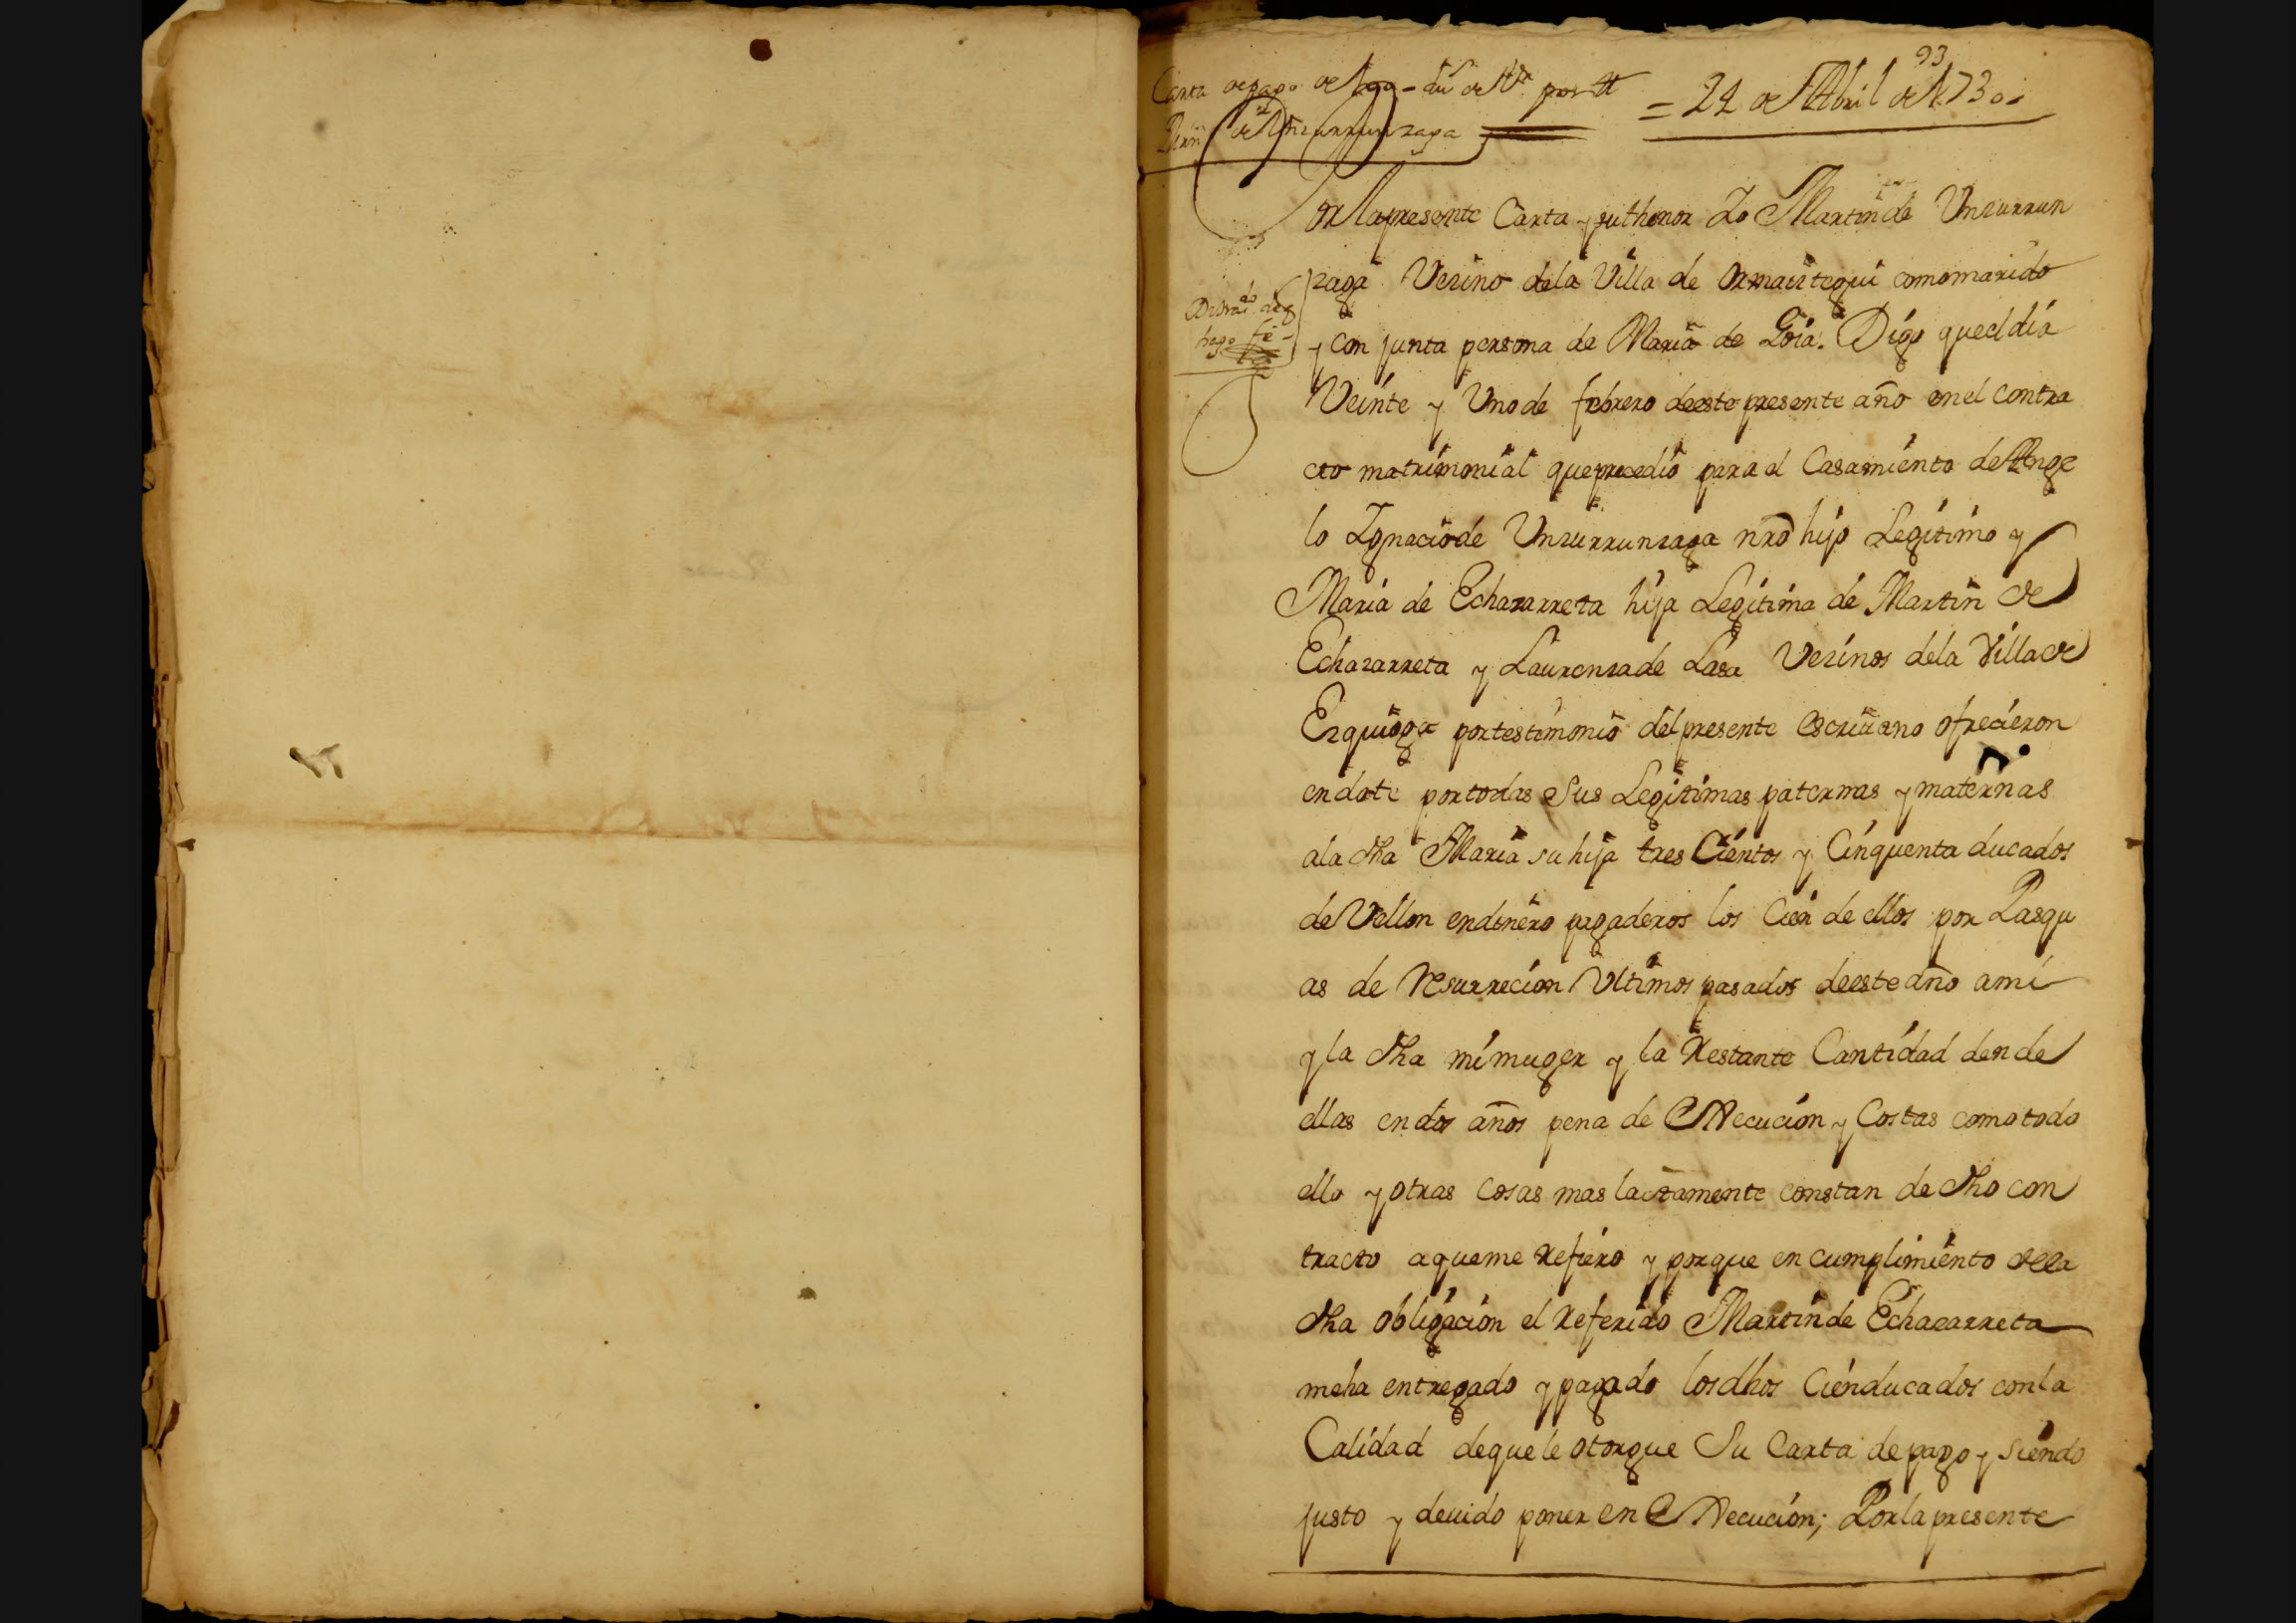 93
Carta de pago de por
= 24 de Abril de 1730 =
de Unzurrunzaga
Por la presente Carta y su thenor Yo Martin de Unzurrun
zaga Vezino de la Villa de Ormaiztegui como marido
hago fé
y con junta persona de Maria de Goia. Digo que el dia
Veinte y Uno de febrero de este presente año en el contra
cto matrimonial que precedio para el Casamiento de Ange
lo Ygnacio de Unzurrunzaga nrõ hijo Legitimo y
Maria de Echazarreta hija Legitima de Martin de
Echazarreta y Laurenza de Lasa Vezinos de la Villa de
Ezquioga por testimonio del presente escriuano ofrecieron
en dote por todas Sus Legitimas paternas y maternas
a la dha Maria su hija tres Cientos y Cinquenta ducados
de Vellon en dinero pagaderos los Cien de ellos por Pasqu
as de Resurrecion Ultimos pasados de este año a mi
y la dha mi muger y la Restante Cantidad dende
ellas en dos años pena de eXecucion y Costas como todo
ello y otras cosas mas lactamente constan de dho con
tracto a que me Refiero y porque en cumplimiento de la
dha obligacion el Referido Martin de Echazarreta
me ha entregado y pagado los dhos Cien ducados con la
Calidad de que le otorgue Su Carta de pago y siendo
justo y deuido poner en eXecucion; Por la presente